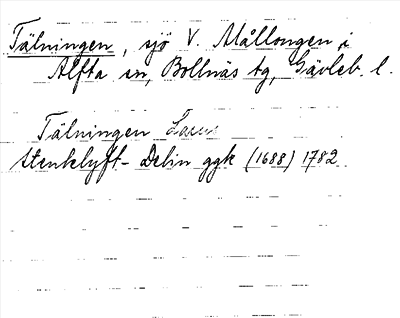 Tälningen, sjö V. Mållongen i
Alfta sn, Bollnäs tg, Gävleb. l.
Tälningen Lacus
Stenklyft- Delin ggk (1688) 1782